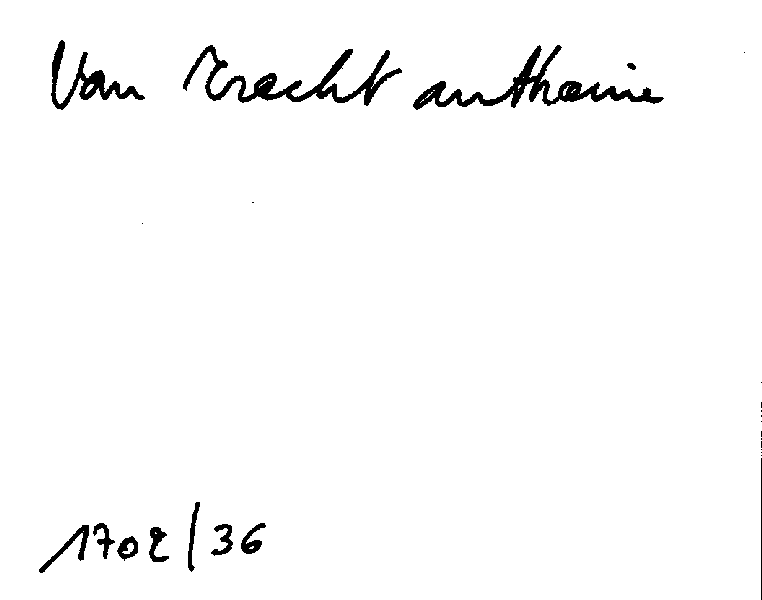 Van Tracht anthoine
1702/36